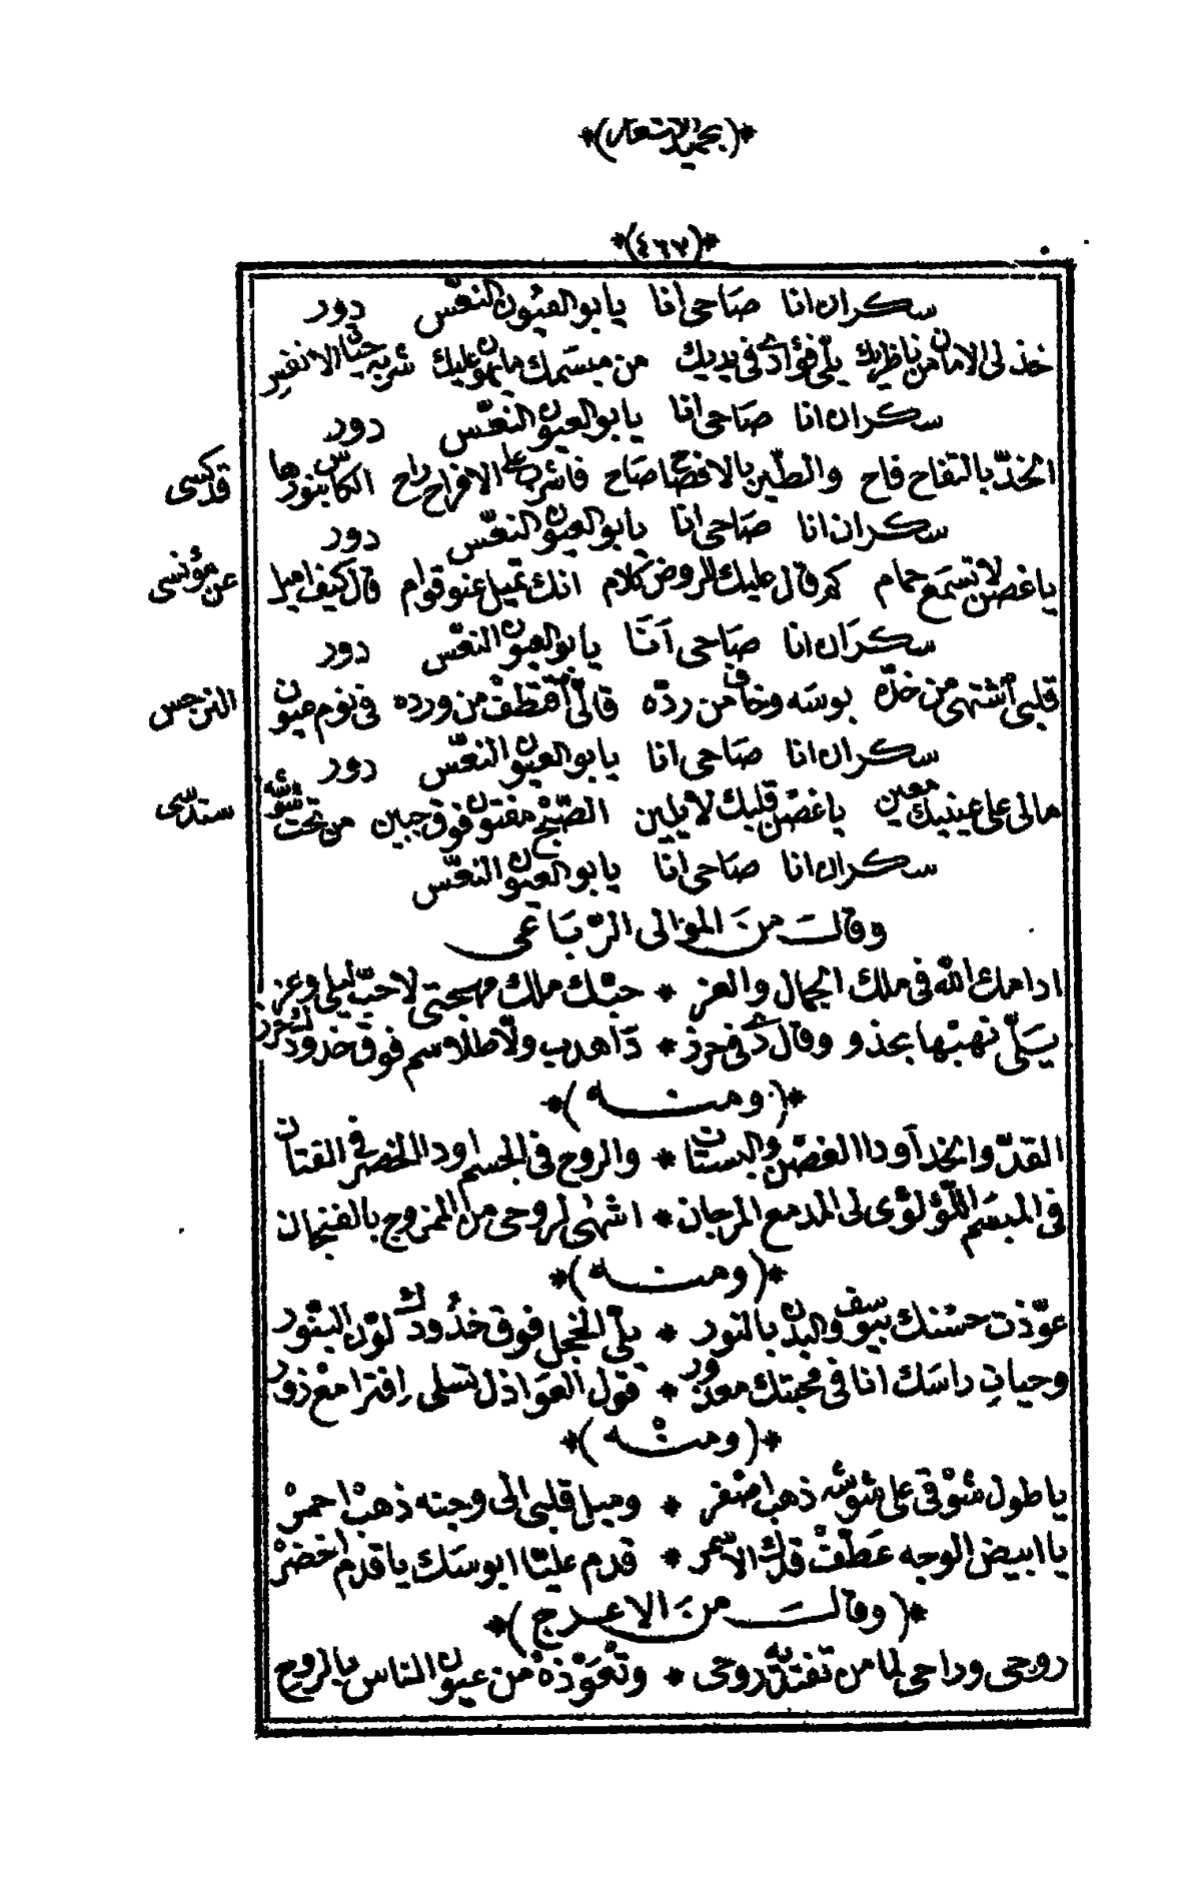 *(بحميد الاشعار)*
*(٤٦٧)*
سكران انا صَاحى انا يابو العيُون النعّس دور
خذ لى الامان من ناظريك يلّى فؤادى فى يديك من مبسَمك مايهون عليك شربه حيَاة الانفس
سكران انا صَاحى انا يابو العيون النعّس دور
الخدّ بالتفاح فاح والطّير بالافصَاح صَاح فاشرب على الافراح راح الكاس بنورها قد كسى
سكران انا صَاحى انا يابو العيون النعّس دور
ياغصن لا تسمَع حمام كم قال عليك للروض كلام انك تميل عنو قوام قال كيف اميل عن مؤنسى
سكرَان انا صَاحى اَنَا يابو العيون النعّس دور
قلبى اشتهى من خدّه بوسَه وخاف من ردّه قالى اقتطف من ورده فى نوم عيون النرجس
سكران انا صَاحى انا يابو العيون النعّس دور
مالى على عينيك معين ياغصْن قلبك لا يلين الصّبْح مفتون فوق جبين من تحت شوشه سندسى
سكران انا صَاحى انا يابو العيون النعّس
وقالَت منَ الموالى الرّبَاعى
ادامك الله فى ملك الجمال والعز * حبّك ملك مهجتى لاحبّ ليلى وعز
يسَلّى تهبْها بخذو وقال دى فى حرز * دَا هدب ولّا طلاسم فوق خدودك حرز
*(ومنه)*
القدّ والخد اَو دا الغصْن والبستان * والروح فى الجسم او دا الخصر فى القتان
فى المبسَم اللّؤلؤى لى المدمع المرجان * اشهى لروحى من الممزوج بالفنجان
*(ومنه)*
عوّذت حسْنك بيوسف والبدن بالنور * يلّى الخجل فوق خدُودك لوْن البنّور
وحياتِ راسَك انا فى محبتك معذور * قول العوَاذل تسلى افترا معْ زور
*(ومنْه)*
ياطول شوْقى على شوشه ذهب اصْفر * وميل قلبى الى وجنته ذهبْ احمرْ
يا ابيض الوجه عَطّفْ قدك الاسمر * قدم عليّا ابوسَك يا قدم اخضرْ
*(وقالتَ منَ الاعرج)*
روحى وراحى لما من تفتديه روحى * وتعْوّذهْ من عيون الناس بالروح